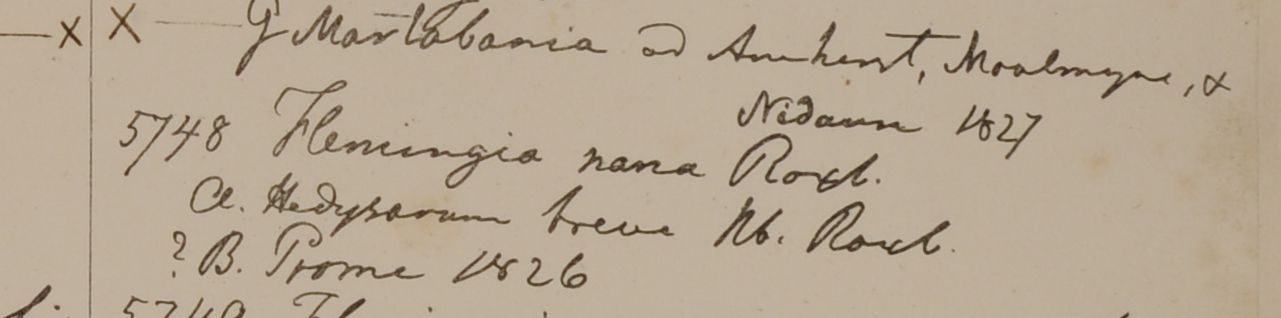 x x G Martabania ad Amherst, Moalmeyne, &
Nidaun 1827
5748 Flemingia nana Roxb.
a. Hedysarum breve Hb. Roxb.
? B. Prome 1826
5749 Flemingia